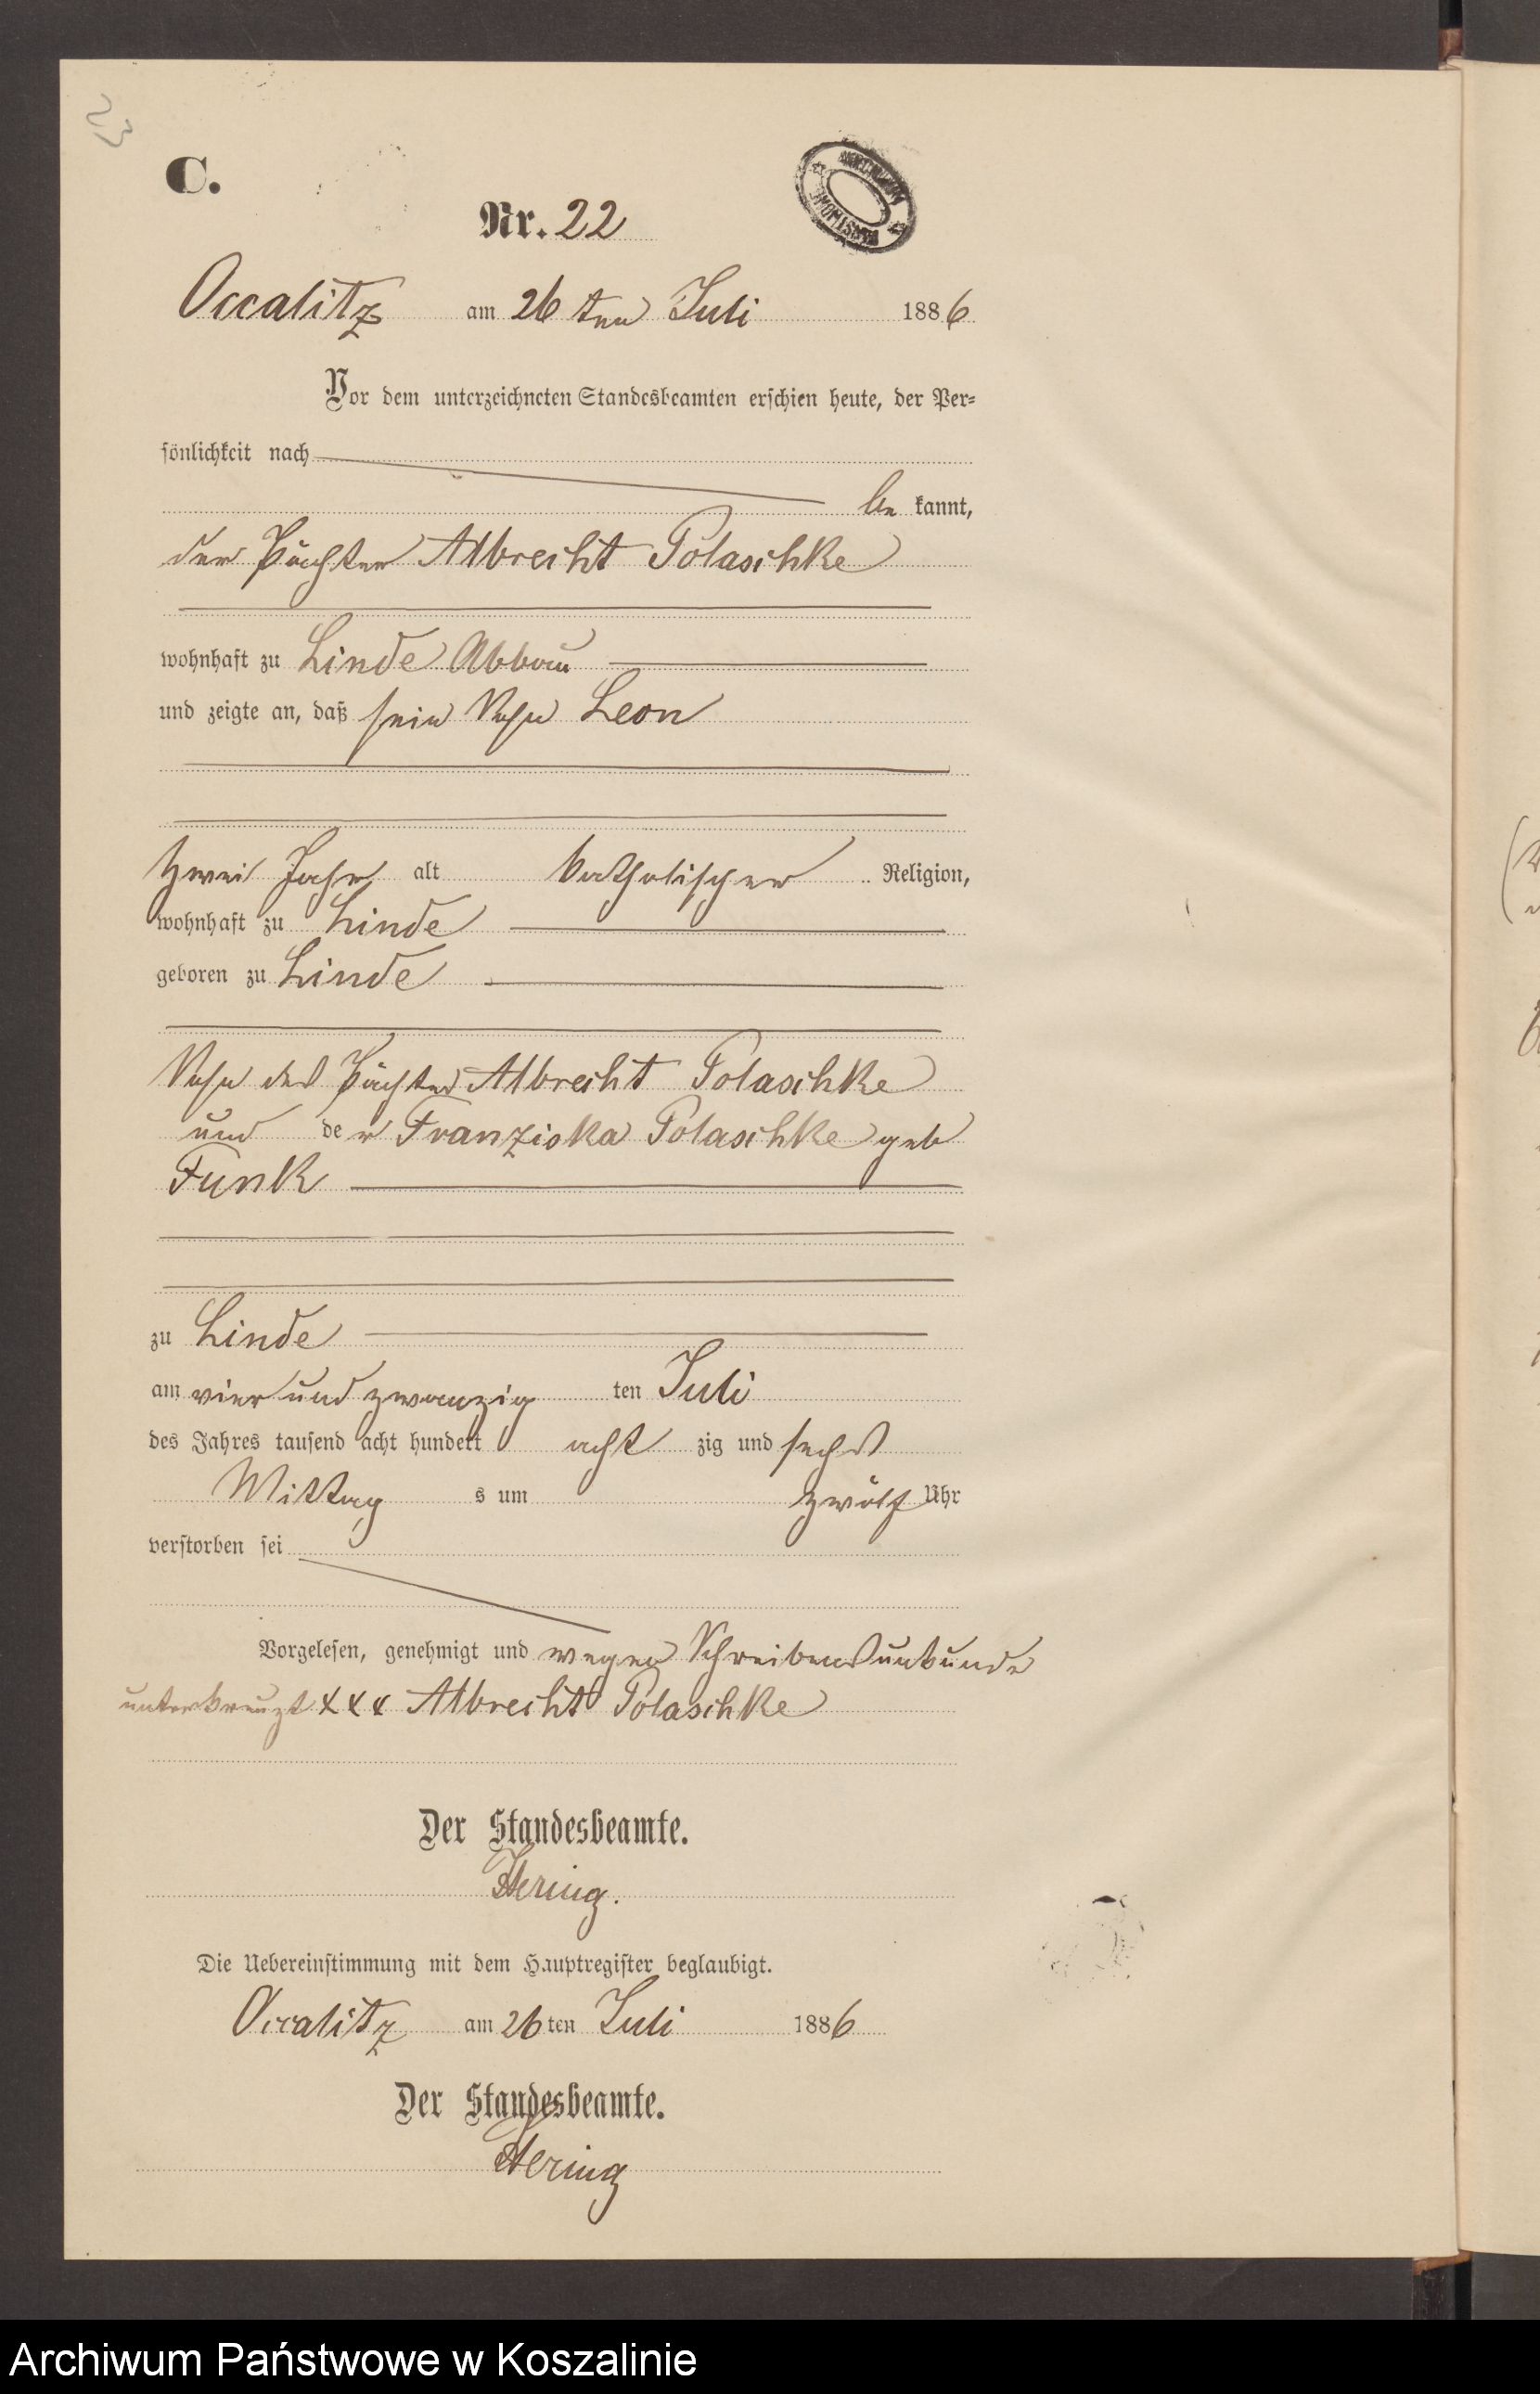 23
C.
Nr. 22
Occalitz am 26 ten Juli 1886
Vor dem unterzeichneten Standesbeamten erschien heute, der Per-
sönlichkeit nach
be kannt,
der Pächter Albrecht Polaschke
wohnhaft zu Linde Abbau
und zeigte an, daß sein Sohn Leon
zwei Jahr alt katholischer Religion,
wohnhaft zu Linde
geboren zu Linde
Sohn des Pächter Albrecht Polaschke
und der Franziska Polaschke geb
Funk
zu Linde
am vier und zwanzig ten Juli
des Jahres tausend acht hundert acht zig und sechs
Mittag s um zwölf Uhr
verstorben sei
Vorgelesen, genehmigt und wegen Schreibensunkunde
unterkreuzt xxx Albrecht Polaschke
Der Standesbeamte.
Hering.
Die Uebereinstimmung mit dem Hauptregister beglaubigt.
Occalitz am 26 ten Juli 1886
Der Standesbeamte.
Hering
Archiwum Państwowe w Koszalinie